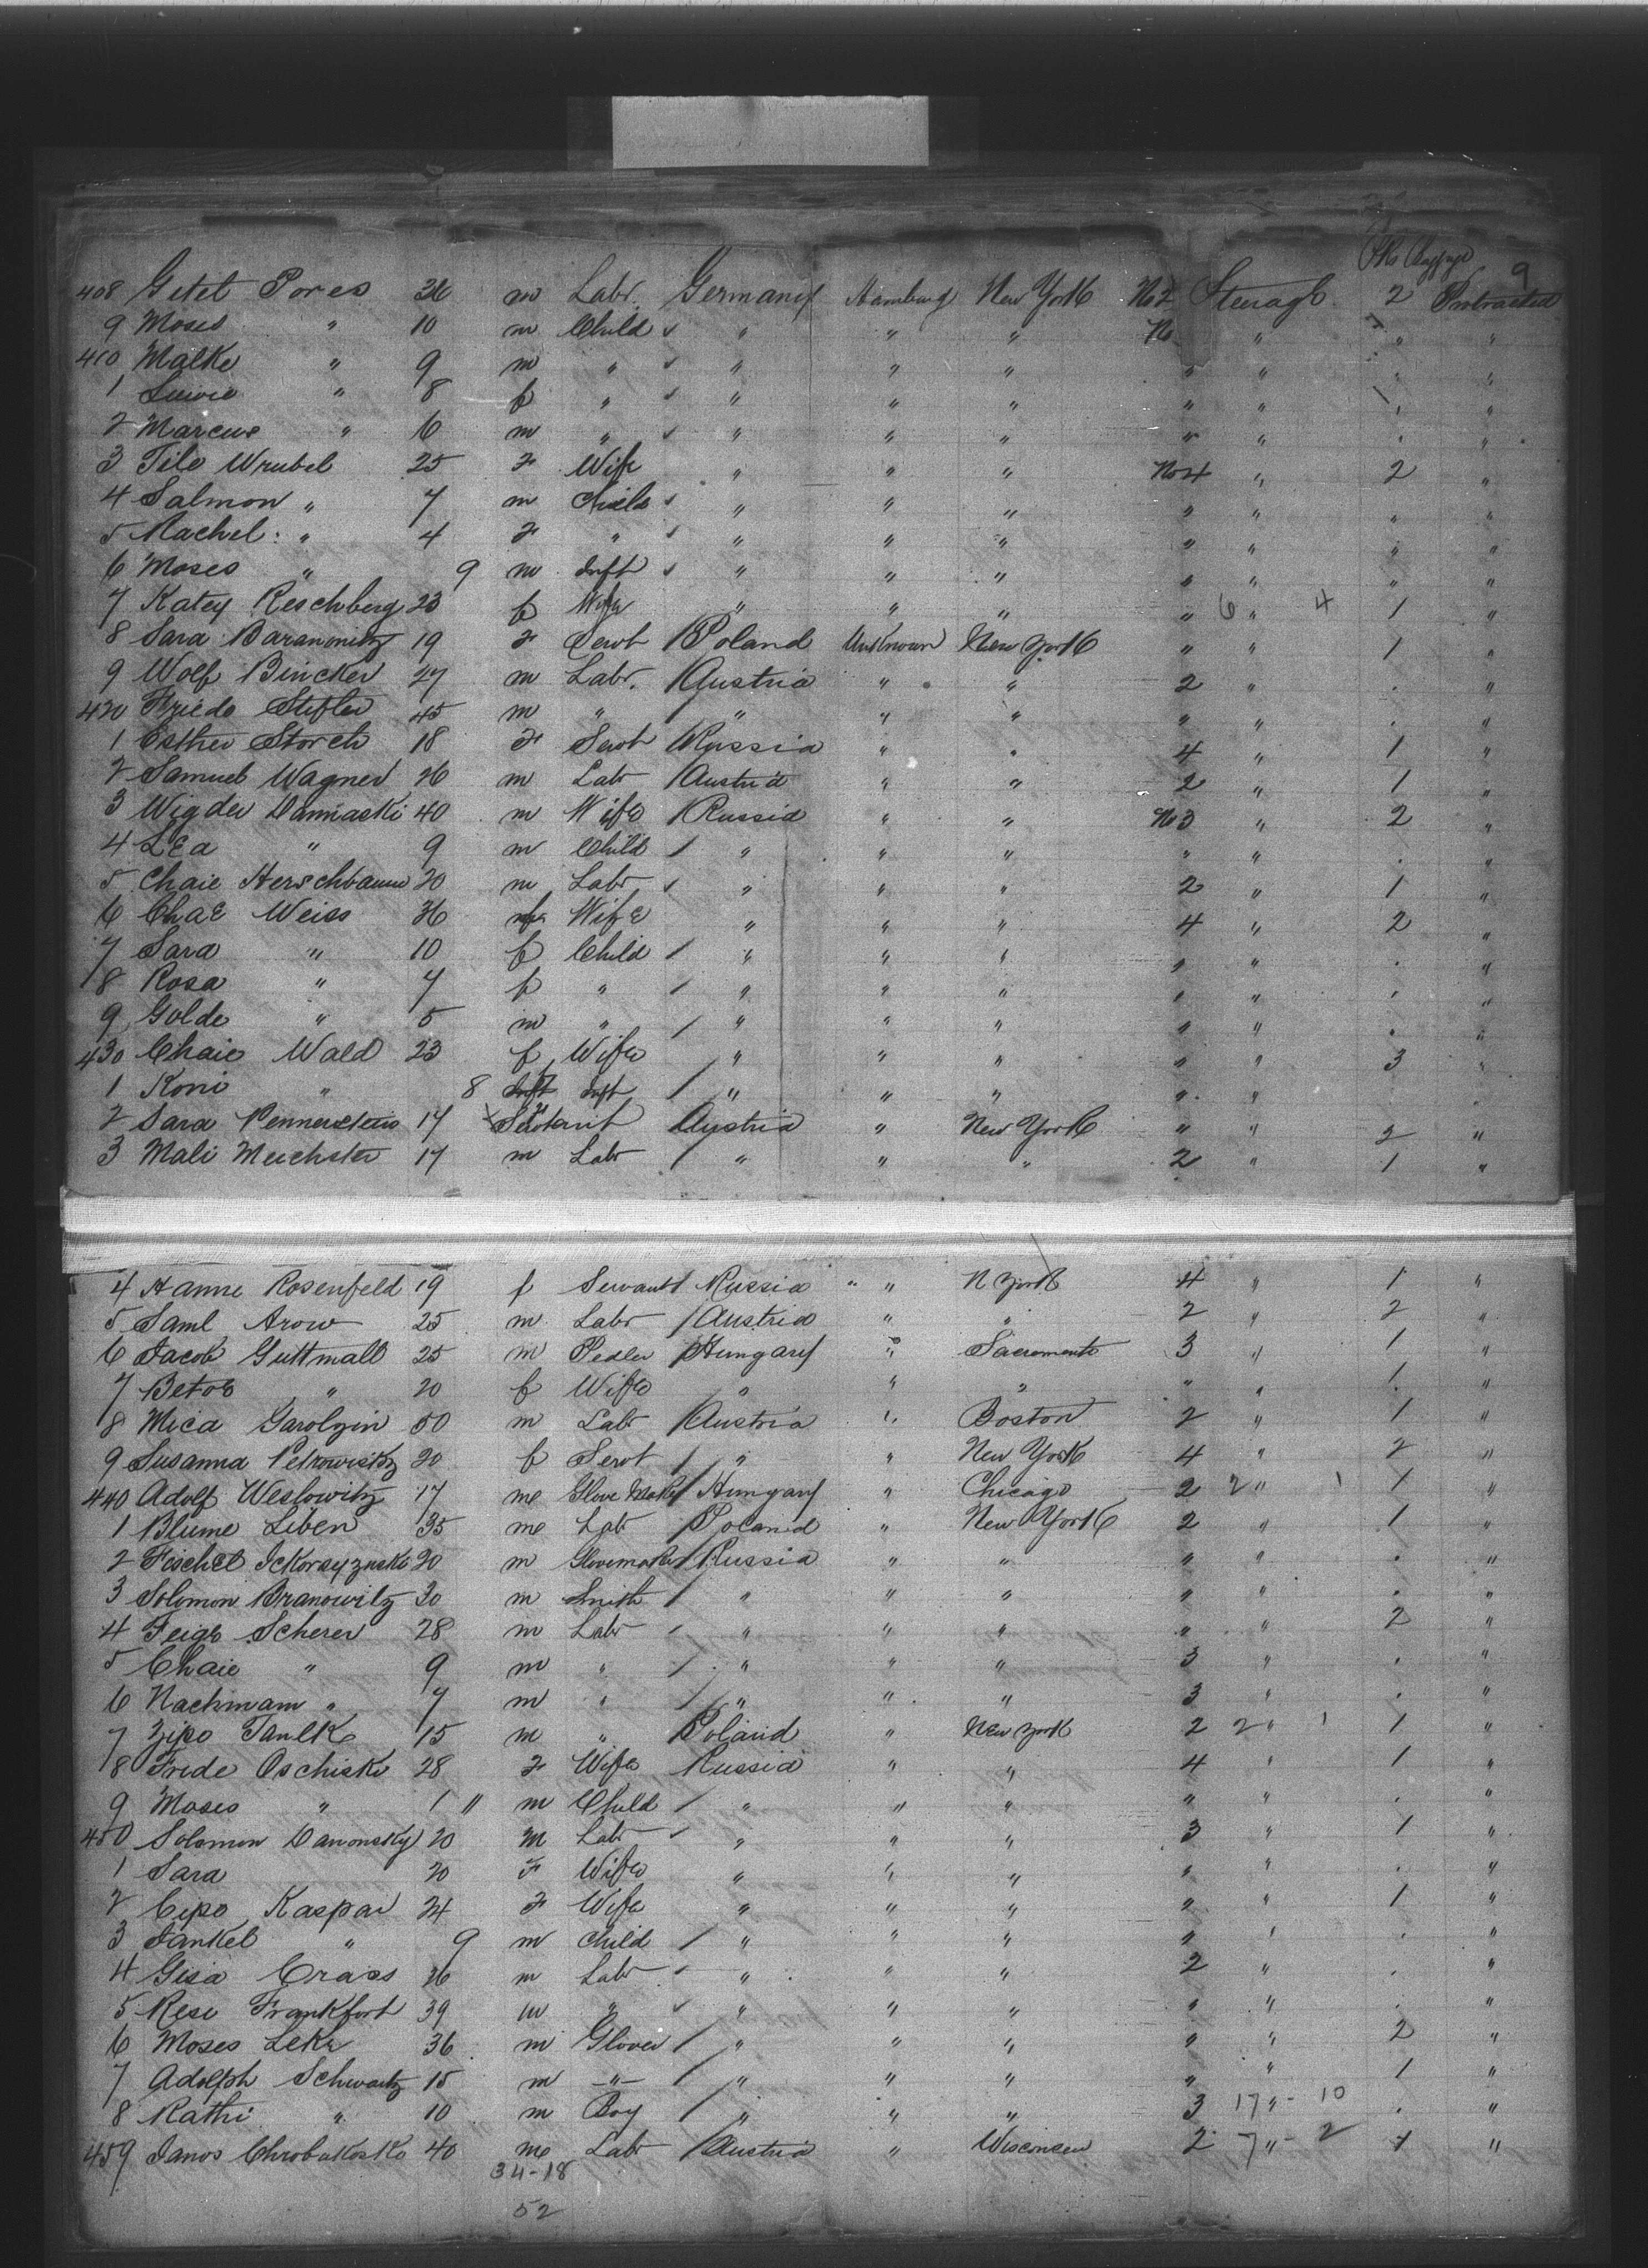 Pks Baggage 9
408 Getel Pores 36 m Labr. Germany Hamburg New York No 2 Steerage 2 Protracted
9 Moses " 10 m Child " " " No " " "
410 Malke " 9 m " " " " " " " "
1 " 8 f " " " " " " " "
2 Marcus " 6 m " " " " " " " "
3 File Wrubel 25 F Wife " " " No 4 " 2 "
4 Salmon " 7 m Child " " " " " " "
5 Rachel " 4 F " " " " " " " "
6 Moses " 9 m Inft " " " " " " "
7 Katey Reschberg 23 f Wife " " " " 6 " 4 1 "
8 Sara Baranowitz 19 F Servt Poland Unknown New York " " 1 "
9 Wolf Bincker 27 m Labr. Austria " " 2 " "
420 Friede Stifler 45 m " " " " " " "
1 Esther Storch 18 F Servt Russia " " 4 " 1 "
2 Samuel Wagner 26 m Labr Austria " " 2 " 1 "
3 Wigder Damaski 40 m Wife Russia " " No 3 " 2 "
4 Lea " 9 m Child " " " " " "
5 Chaie Herschbaum 20 m Labr " " " 2 " 1 "
6 Chae Weiss 36 Wife " " " 4 " 2 "
7 Sara " 10 f Child " " " " " "
8 Rosa " 7 f " " " " " " "
9 Golde " 5 m " " " " " " "
430 Chaie Wald 23 f Wife " " " " " 3 "
1 Koni " 8 Inft " " " " "
2 Sara 17 Austria " New York " " 2 "
3 Mali Meichster 17 m Labr " " " 2 " 1 "
4 Hanne Rosenfeld 19 f Servant Russia " " N York 4 " 1 "
5 Saml Arow 25 m Labr Austria " " 2 " 2 "
6 Jacob Guttmall 25 m Pedler Hungary " Sacramento 3 " 1 "
7 Betor " 20 f Wife " " " " " 1 "
8 Mica Garolyin 50 m Labr Austria " Boston 2 " 1 "
9 Susanna Petrowiskz 20 f Servt " " New York 4 " 2 "
440 Adolf Weslowitz 17 m Glove Maker Hungary " Chicago 2 2 " 1 1 "
1 Blume Liben 35 m Labr Poland " New York 2 " 1 "
2 Fischel 20 m Glovemaker Russia " " " " "
3 Solomon Branowitz 30 m Smith " " " " " "
4 Feige Scherer 28 m Labr " " " " " 2 "
5 Chaie " 9 m " " " " 3 " "
6 Nachmann " 7 m " " " " 3 " "
7 Zipo Taulk 15 m " Poland " New York 2 2 " 1 1 "
8 Frede Oschiski 28 F Wife Russia " " 4 " 1 "
9 Moses " 1 " m Child " " " " " "
450 Solomon Danonsky 20 m Labr " " " 3 " 1 "
1 Sara 20 F Wife " " " " " "
2 Cipo Kaspar 24 F Wife " " " " " 1 "
3 Jankel " 9 m Child " " " " " "
4 Gisa Crass 36 m Labr " " " 2 " "
5 Rese Frankfort 39 m " " " " " " "
6 Moses Leke 36 m Glover " " " " " 2 "
7 Adolph Schwartz 15 m -"- " " " " " 1 "
8 Kathi " 10 m Boy " " " 3 17 " - 10 "
459 Janos Chrobakosko 40 m Labr Austria " Wisconsin 2 7 " - 2 1 "
34-18
52